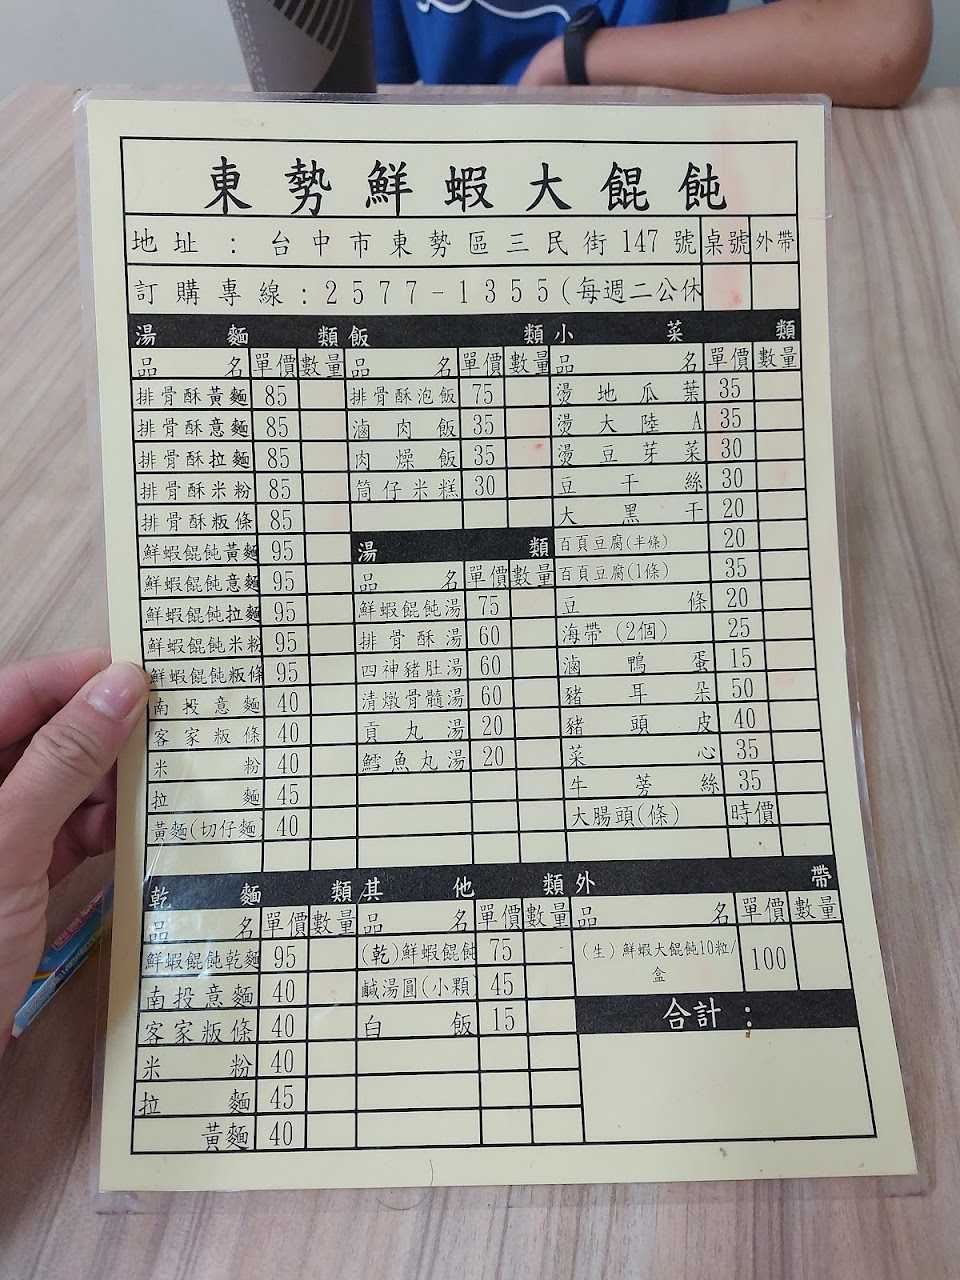 東勢鮮蝦大餛飩
地址：台中市東勢區三民街147號 桌號 外帶
訂購專線：2577-1355(每週二公休
湯麵類
品名 單價 數量
排骨酥黃麵 85
排骨酥意麵 85
排骨酥拉麵 85
排骨酥米粉 85
排骨酥粄條 85
鮮蝦餛飩黃麵 95
鮮蝦餛飩意麵 95
鮮蝦餛飩拉麵 95
鮮蝦餛飩米粉 95
鮮蝦餛飩粄條 95
南投意麵 40
客家粄條 40
米粉 40
拉麵 45
黃麵(切仔麵 40
飯類
品名 單價 數量
排骨酥泡飯 75
滷肉飯 35
肉燥飯 35
筒仔米糕 30
湯類
品名 單價 數量
鮮蝦餛飩湯 75
排骨酥湯 60
四神豬肚湯 60
清燉骨髓湯 60
貢丸湯 20
鱈魚丸湯 20
小菜類
品名 單價 數量
燙地瓜葉 35
燙大陸A 35
燙豆芽菜 30
豆干絲 30
大黑干 20
百頁豆腐(半條) 20
百頁豆腐(1條) 35
豆條 20
海帶(2個) 25
滷鴨蛋 15
豬耳朵 50
豬頭皮 40
菜心 35
牛蒡絲 35
大腸頭(條) 時價
乾麵類
品名 單價 數量
鮮蝦餛飩乾麵 95
南投意麵 40
客家粄條 40
米粉 40
拉麵 45
黃麵 40
其他類
品名 單價 數量
(乾)鮮蝦餛飩 75
鹹湯圓(小顆 45
白飯 15
外帶
品名 單價 數量
(生)鮮蝦大餛飩10粒/
盒 100
合計：